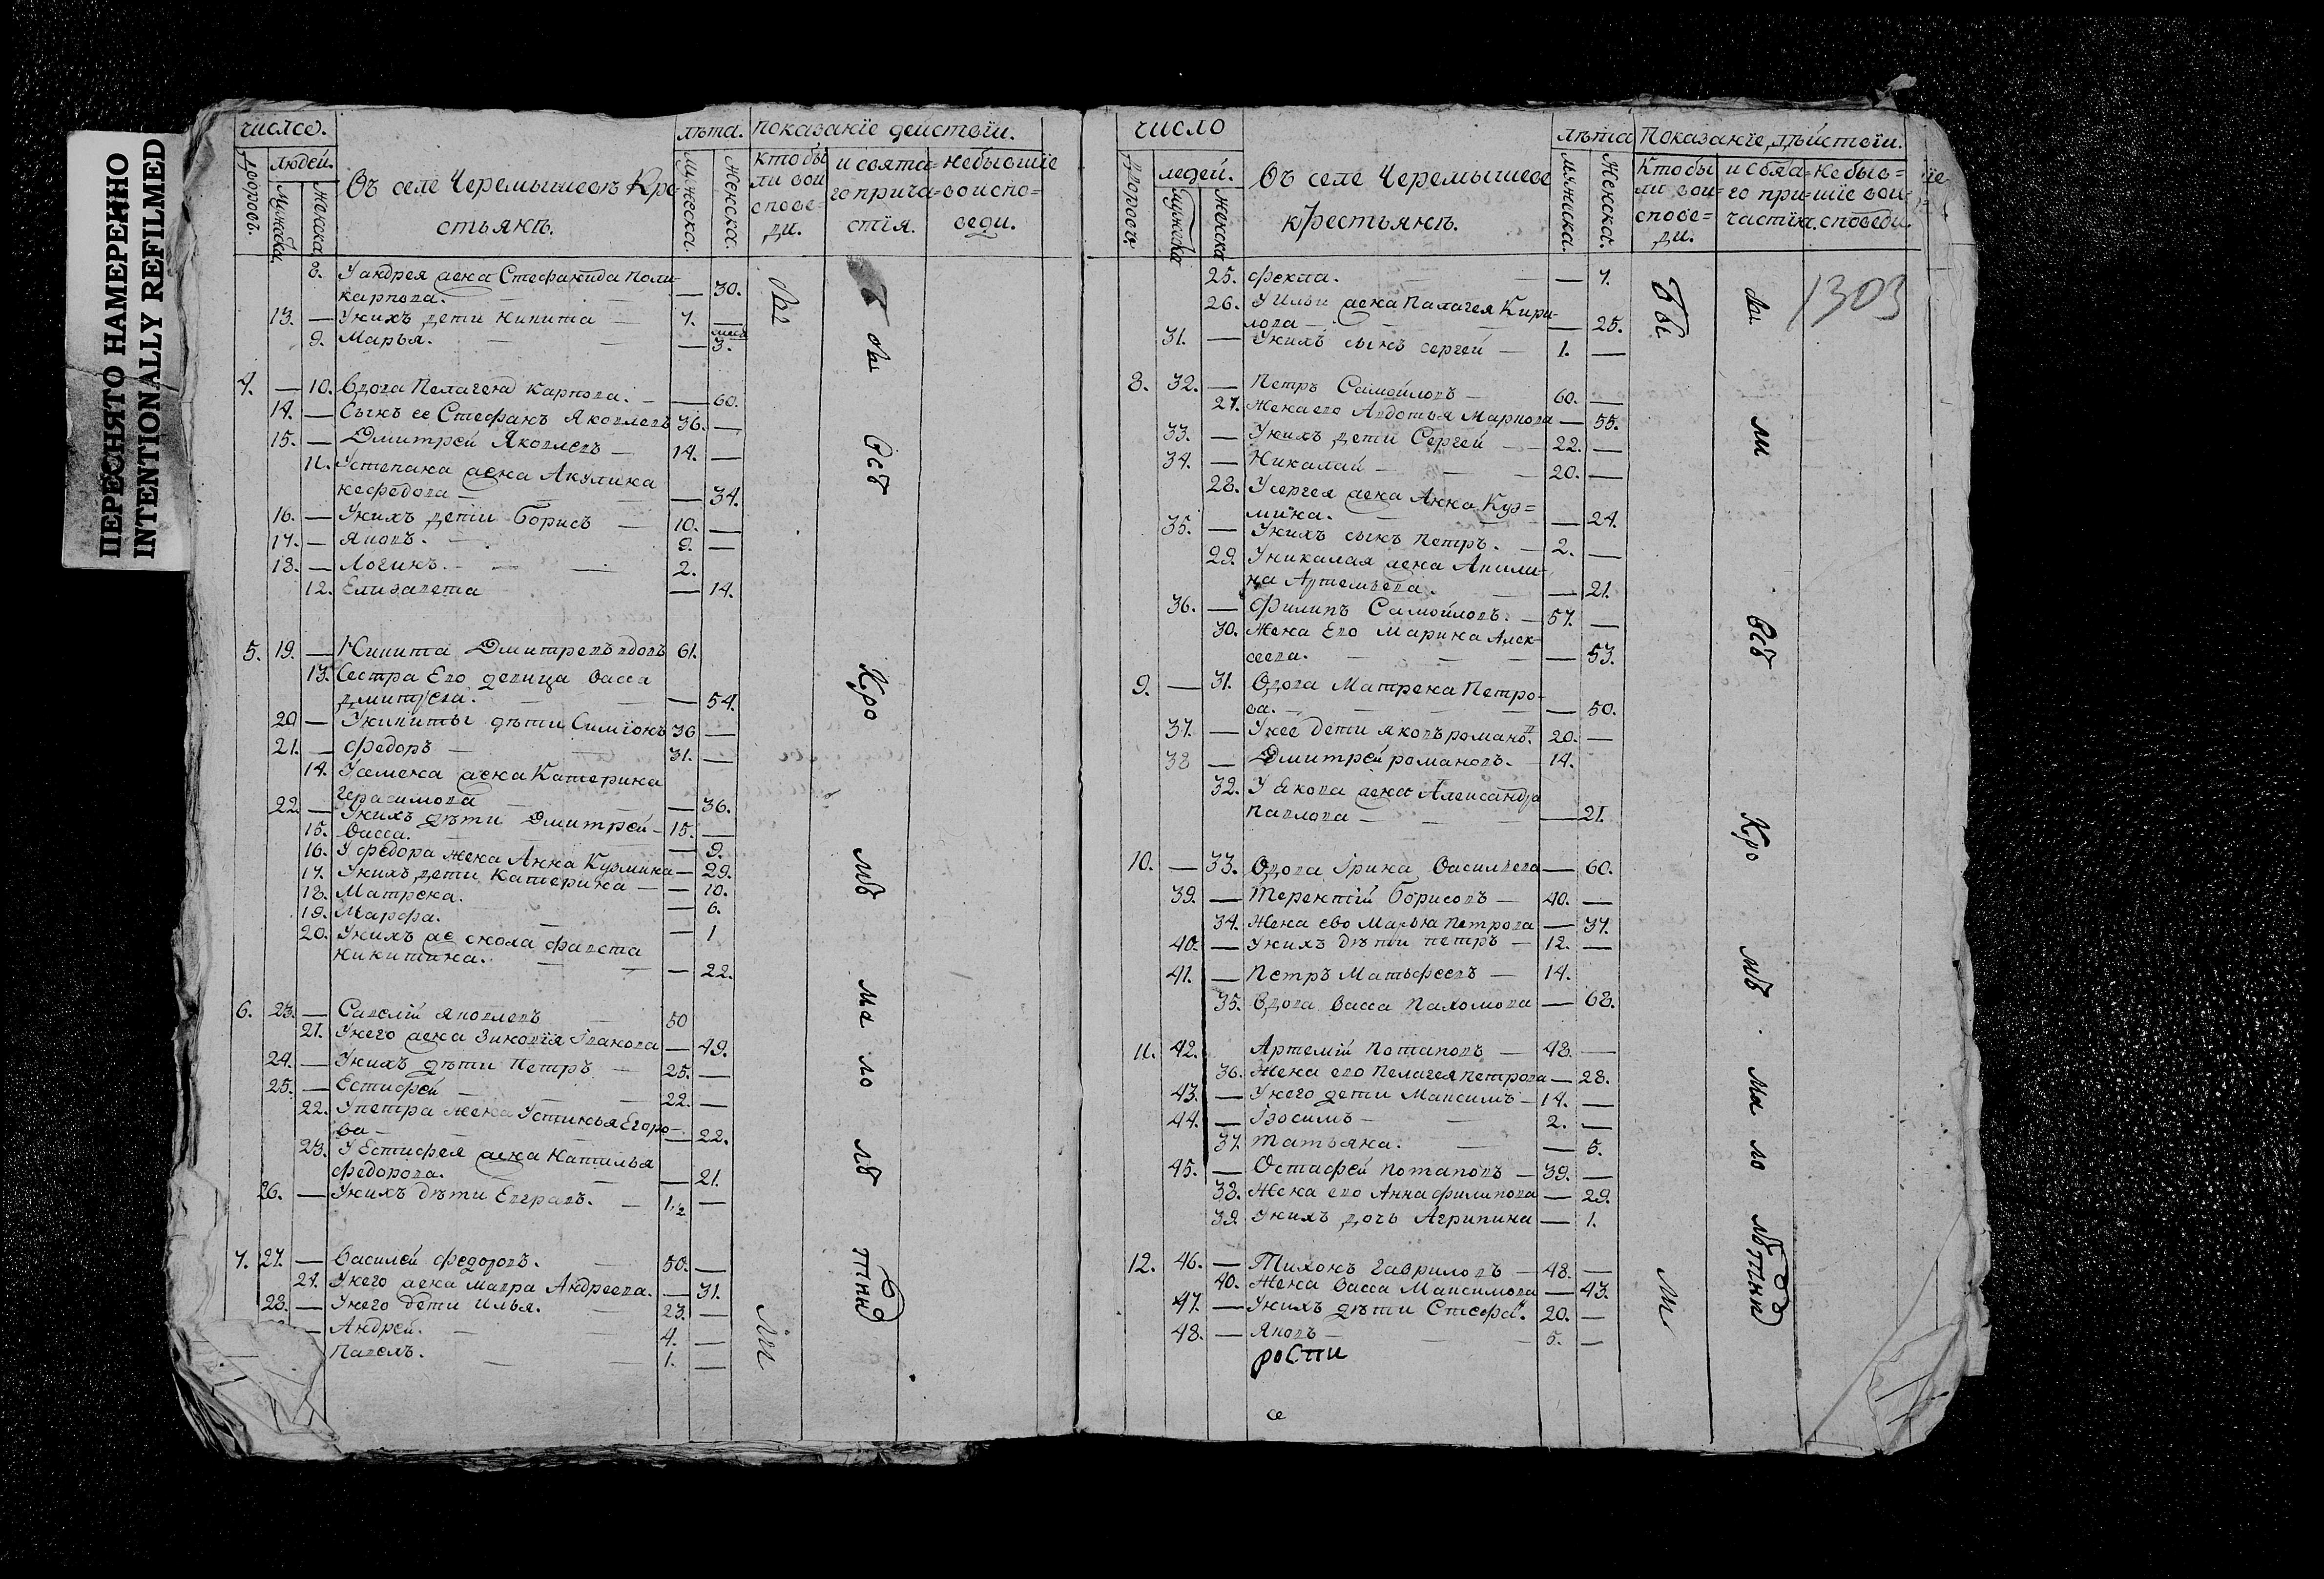 ПЕРЕСНЯТО НАМЕРЕННО
INTENTIONALLY REFILMED
число.
лѣта. показанїе деистви.
Дворовъ.
людей.
Мужеска.
Женска.
Въ селе Черемышевѣ Кре
стьянъ.
Мужеска.
Женска.
кто бы
ли вои
спове=
ди.
и свята=
го прича=
стїя.
не бывшїе
во испо=
веди.
8. У андрея жена Стефанида Поли
карпова. — 30.
13. — У нихъ дети Никита — 7. —
9. Марья. — 3.
4. — 10. Вдова Пелагея Карпова. — 60.
14. — Сынъ ее Стефанъ Яковлевъ 36. —
15. — Дмитрей Яковлевъ — 14. —
11. У степана жена Акулина
нефедова — 34.
16. — У нихъ дети Борисъ — 10. —
17. — Яковъ. 9. —
18. — Логинъ. — 2.
12. Елизавета — 14.
5. 19. — Никита Дмитревъ вдовъ 61.
13. Сестра Ево девица Васса
дмитрева. — 54.
20 — У никиты дѣти Симїонъ 36 —
21. — Федоръ — 31. —
14. У семена жена Катерина
Герасимова — 36.
22 — У нихъ дѣти Дмитрей — 15. —
15. Васса. — 9.
16. У федора жена Анна Кузмина — 29.
17. У нихъ дети Катерина — 10.
18. Матрена. — 6.
19. Марфа. — 1
20. У нихъ же
никитина. — 22.
6. 23. — Савелїй Яковлевъ 50
21. У него жена Зиновїя Іванова — 49.
24. — У нихъ дѣти Петръ — 25. —
25. — Естифей — 22. —
22. У петра жена Устинья Егоро
ва — 22.
23. У Естифея жена Наталья
федорова. — 21.
26. — У нихъ дѣти Евграфъ. — 1/2 —
7. 27. — Василей Федоровъ. 50. —
24. У него жена Мавра Андреева. — 31.
28. — У него дети Илья. 23. —
— Андрей. — 4. —
Павелъ. — 1. —
бы
бы Всѣ Кро мѣ ма ло лѣ тнихъ
ли
число
лѣта Показанїе дѣйствїи.
Дворовъ.
людей.
Мужеска
Женска
Въ селе Черемышеве
крестьянъ.
Мужеска.
Женска.
Кто бы
ли вои=
спове=
ди.
и свята=
го при=
частїя.
не быв=
шїе вои
споведи.
25. Фекла. — 7.
26. У Ильи жена Палагея Кири=
лова — 25.
31. — У нихъ сынъ Сергей — 1. —
8. 32. — Петръ Самойловъ — 60. —
27. Жена ево Авдотья Маркова — 55.
33. — У нихъ дети Сергей — 22. —
34. — Николай — 20. —
28. У сергея жена Анна Куз=
мина. — 24.
35. — У нихъ сынъ Петръ. — 2. —
29. У николая жена Акили
на Артемьева. — 21.
36. — Филипъ Самойловъ. — 57. —
30. Жена Ево Марина Алек
сеева. — 53.
9. — 31. Вдова Матрена Петро=
ва. — 50.
37. — У нее дети яковъ романо. 20. —
38 — Дмитрей романовъ. — 14.
32. У якова жена Александра
Павлова — 21.
10. — 33. Вдова Ірина Васильева — 60.
39. — Терентїй Борисовъ — 40. —
34. Жена ево Марья Петрова — 37.
40. — У нихъ дѣти петръ — 12. —
41. — Петръ Матвфеевъ — 14.
35. Вдова Васса Пахомова — 68.
11. 42. Артемїй Потаповъ — 48. —
36. Жена ево Пелагея Петрова — 28.
43. — У него дети Максимъ — 14. —
44. — Ізосимъ — 2. —
37. Татьяна. — 5.
45. — Остафей Потаповъ — 39. —
38. Жена ево Анна филипова — 29.
39 У нихъ дочь Агрипина — 1.
12. 46. — Тихонъ Гавриловъ — 48. —
40. Жена Васса Максимова — 43.
47. — У нихъ дѣти Стефа. 20. —
48. — Яковъ — 5. —
рости
се
бы
ли
бы ли Всѣ Кро мѣ ма ло лѣтнихъ
1303